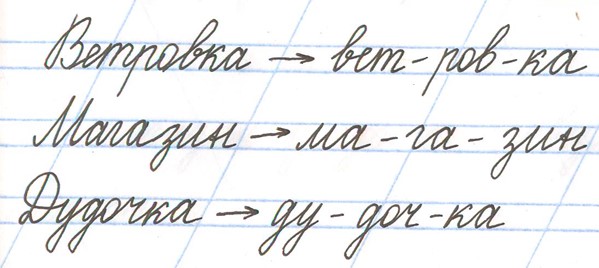 Ветровка → вет-ров-ка
Магазин → ма-га-зин
Дудочка → ду-доч-ка